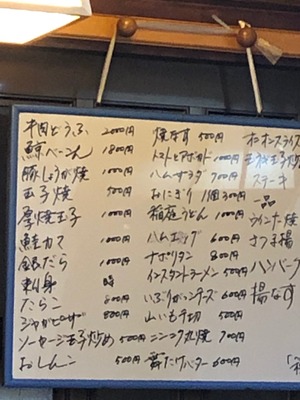 肉どうふ 2000円
鯨ベーコン 1800円
豚しょうが焼 1000円
玉子焼 500円
厚焼玉子 1000円
鮭カマ 1000円
銀だら 1000円
刺身 時
たらこ 800円
ジャガピザ 800円
ソーセージ玉子炒め 500円
おしんこ 500円
焼なす 500円
トマトとアボカド 1000円
ハムサラダ 700円
おにぎり 1個 300円
稲庭うどん 1000円
ハムエッグ 600円
ナポリタン 800円
インスタントラーメン 500円
いぶりがっこチーズ 600円
山いも千切 500円
ニンニク丸焼 700円
舞たけバター 600円
オニオンスライス
玉子炒
ステーキ
一品
ウインナー焼
さつま揚
ハンバーグ
揚なす